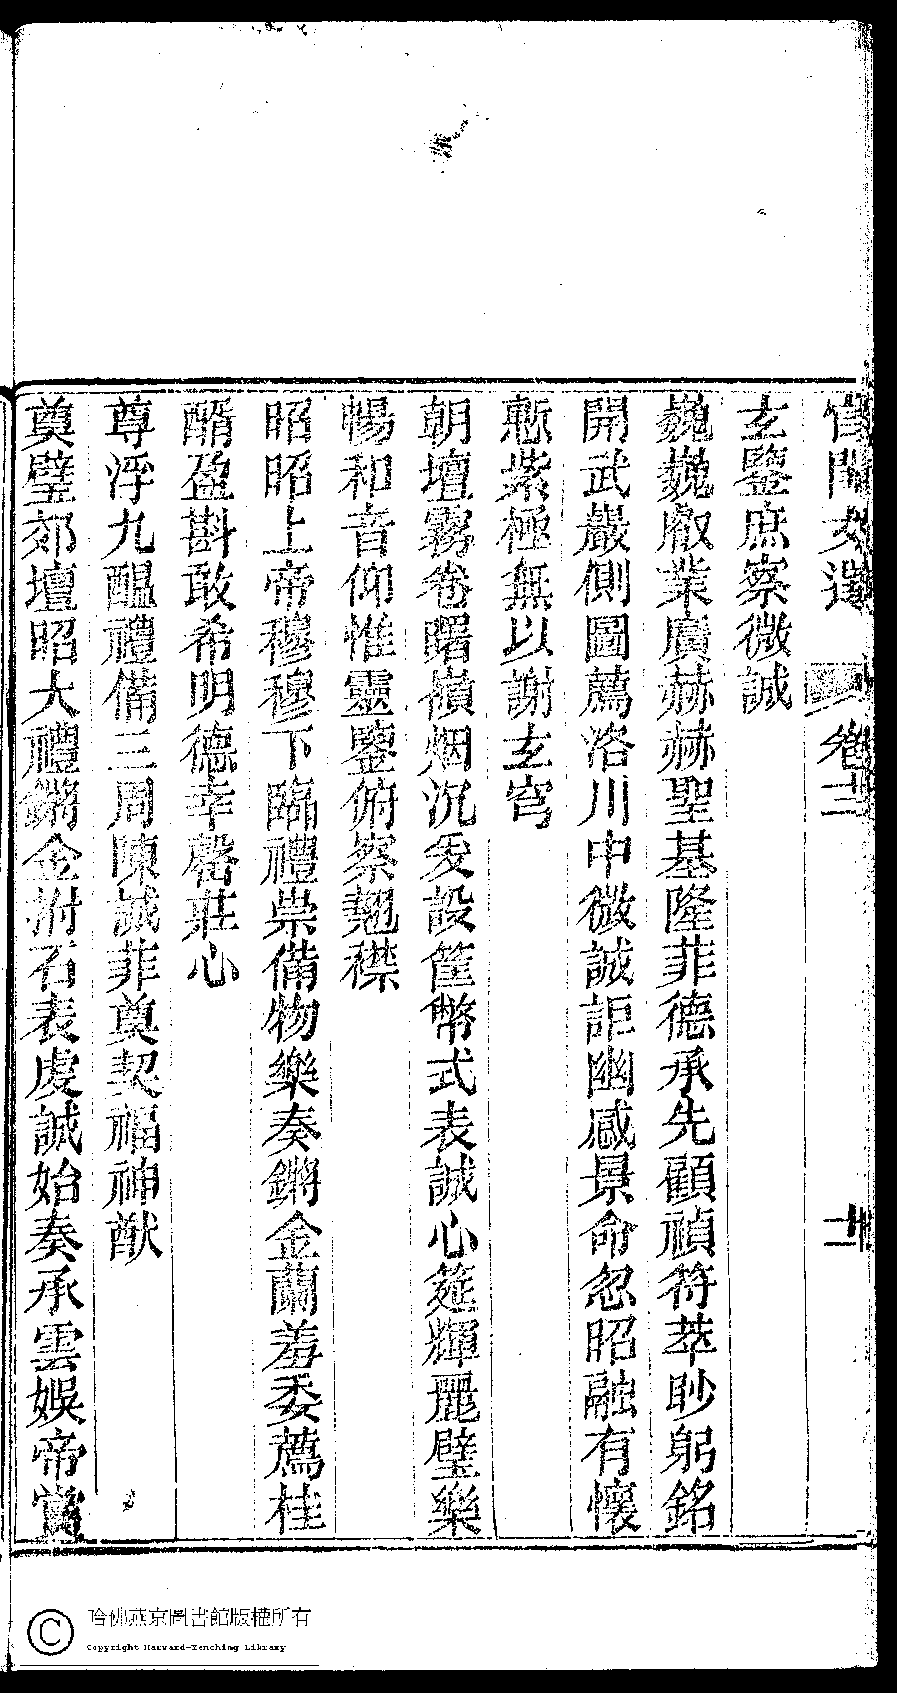 宮閨文選 卷二 十二
玄鑒庶察微誠
巍巍叡業廣赫赫聖基隆菲德承先顧禎符萃眇躬銘
開武巖側圖薦洛川中微誠詎幽感景命忽昭融有懷
慙紫極無以謝玄穹
朝壇霧卷曙嶺烟沉爰設筐幣式表誠心筵輝麗璧樂
暢和音仰惟靈鑒俯察翹襟
昭昭上帝穆穆下臨禮崇備物樂奏鏘金蘭羞委薦桂
醑盈斟敢希明德幸罄莊心
尊浮九醞禮備三周陳誠菲奠契福神猷
奠璧郊壇昭大禮鏘金拊石表虔誠始奏承雲娛帝賞
哈佛燕京圖書館版權所有
Copyright Harvard-Yenching Library